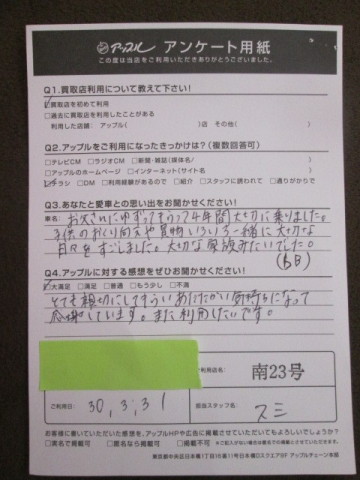 アップル アンケート用紙
この度は当店をご利用いただきありがとうございました。
Q1.買取店利用について教えて下さい!
買取店を初めて利用
□過去に買取店を利用したことがある
利用した店舗: アップル( )店 その他( )
Q2.アップルをご利用になったきっかけは?(複数回答可)
□テレビCM □ラジオCM □新聞・雑誌(媒体名/ )
□アップルのホームページ □インターネット(サイト名 )
チラシ □DM □利用経験があるので □紹介 □スタッフに誘われて □通りがかりで
Q3.あなたと愛車との思い出をお聞かせください!
車名:
お父さんにゆずってもらって4年間大切に乗りました。
子供のおくり向えや買物いろいろ一緒に大切な
日々をすごしました。大切な家族みたいでした。
Q4.アップルに対する感想をぜひお聞かせください!
大満足 □満足 □普通 □もう少し □不満
とても親切にしてもらいあたたかい気持ちになって
感謝しています。また利用したいです。
ご利用店名:
南23号
ご利用日: 30.3.31
担当スタッフ名: スミ
お客様に書いていただいた感想を、アップルHPや広告に掲載させていただいてもよろしいでしょうか?
□実名で掲載可 □匿名なら掲載可 □掲載不可
東京都中央区日本橋1丁目15番11号日本橋DスクエアBF アップルチェーン本部